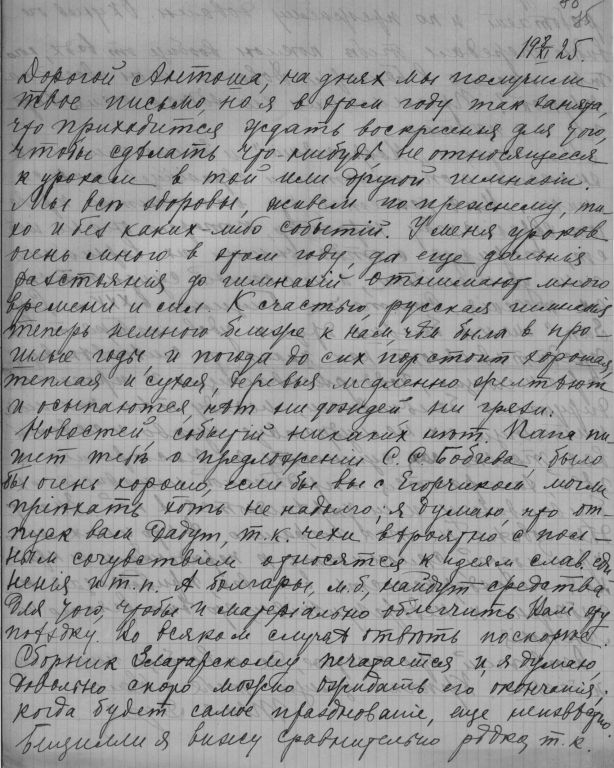 19 2/XI 25.
Дорогой Антоша, на днях мы получили
твое письмо, но я в этом году так занята,
что приходится ждать воскресенья для того,
чтобы сдѣлать что-нибудь, не относящееся
к урокам в той или другой гимназіи.
Мы всѣ здоровы, живем по прежнему, ти-
хо и без каких-либо событій. У меня уроков
очень много в этом году, да еще дальнія
разстоянія до гимназій отнимают много
времени и сил. К счастью, русская гимназія
теперь немного ближе к нам, чѣм была в про-
шлые годы, и погода до сих пор стоит хорошая,
теплая и сухая, деревья медленно желтѣют
и осыпаются, нѣт ни дождей ни грязи.
Новостей, событій никаких нѣт. Папа пи-
шет тебѣ о предложеніи С. С. Бобчева; было
бы очень хорошо, если бы вы с Егорчиком могли
пріѣхать хоть не надолго; я думаю, что от-
пуск вам дадут, т.к. чехи вѣроятно с пол-
ным сочувствіем относятся к идеям слав. еди-
ненія и т.п. А болгары, м.б., найдут средства
для того, чтобы и матеріально облегчить вам эту
поѣздку. Во всяком случаѣ отвѣть поскорѣе.
Сборник Златарскому печатается и, я думаю,
довольно скоро можно ожидать его окончанія.
Когда будет самое празднованіе, еще неизвѣстно.
Бицилли я вижу сравнительно рѣдко, т.к.